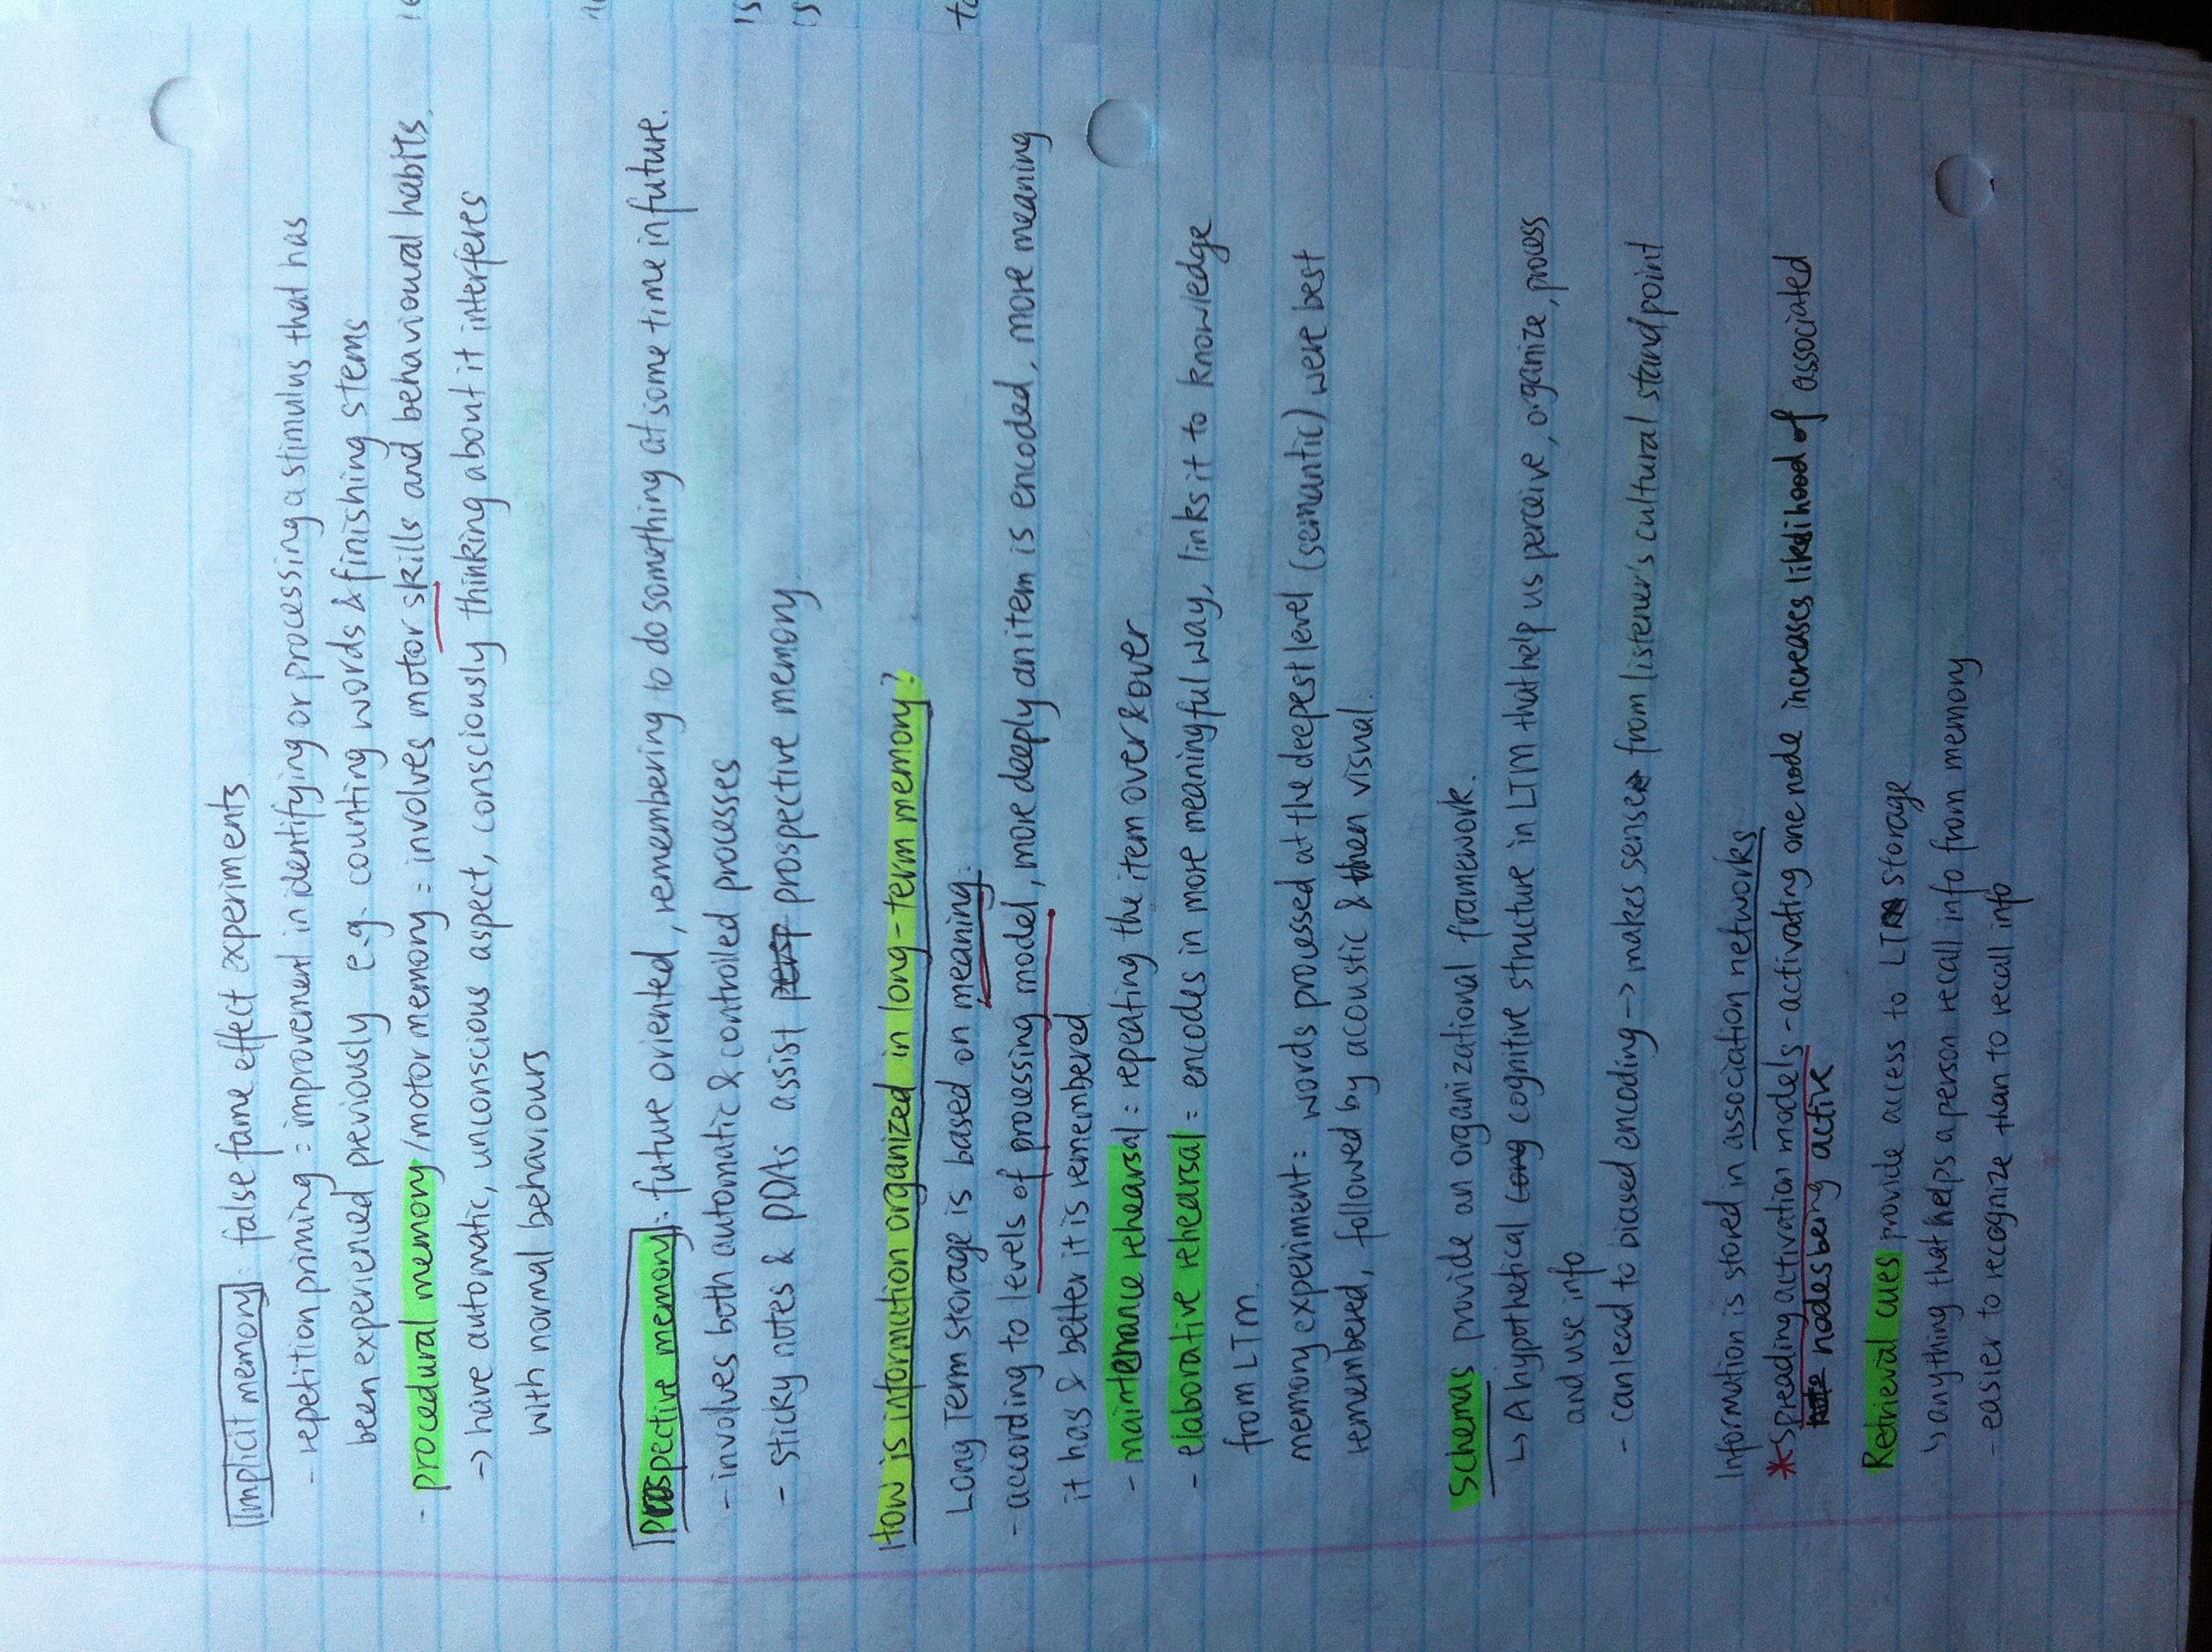 Implicit memory: false fame effect experiments
- repetition priming = improvement in identifying or processing a stimulus that has
been experienced previously e.g. counting words & finishing stems
- procedural memory/motor memory = involves motor skills and behavioural habits,
→ have automatic, unconscious aspect, consciously thinking about it interferes
with normal behaviours
Prospective memory: future oriented, remembering to do something at some time in future.
- involves both automatic & controlled processes
- sticky notes & PDAs assist persp prospective memory.
How is information organized in long-term memory?
Long Term storage is based on meaning.
- according to levels of processing model, more deeply an item is encoded, more meaning
it has & better it is remembered
- maintenance rehearsal = repeating the item over & over
- elaborative rehearsal = encodes in more meaningful way, links it to knowledge
from LTM.
memory experiment: words processed at the deepest level (semantic) were best
remembered, followed by acoustic & then visual.
Schemas provide an organizational framework.
↳ A hypothetical cong cognitive structure in LTM that help us perceive, organize, process
and use info
- can lead to biased encoding → makes sense from listener's cultural standpoint
Information is stored in association networks
* spreading activation models - activating one node increases likelihood of associated
nodes being active
Retrieval cues provide access to LT storage
↳ anything that helps a person recall info from memory
- easier to recognize than to recall info